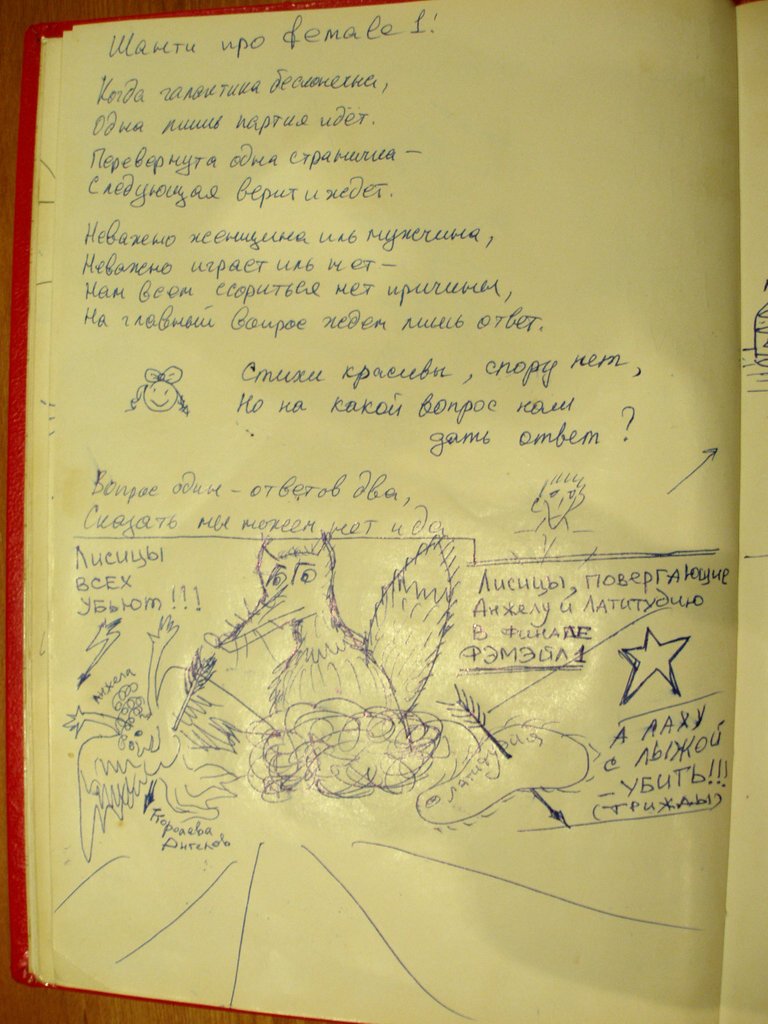 Шанти про female 1!
Когда галактика бесконечна,
Одна лишь партия идёт.
Перевернута одна страничка –
Следующая верит и ждет.
Неважно женщина иль мужчина,
Неважно играет иль нет –
Нам всем ссориться нет причины,
На главный вопрос ждем лишь ответ.
Стихи красивы, спору нет,
Но на какой вопрос нам
дать ответ?
Вопрос один – ответов два,
Сказать мы можем нет и да
Лисицы
всех
убьют!!!
Лисицы, повергающие
Анжелу и Латитудию
в финале
ФЭМЭЙЛ 1
Анжела
Латитудия
Королева
Ангелов
А ЛАХУ
С ЛЫЖОЙ
– УБИТЬ!!!
(ТРИЖДЫ)